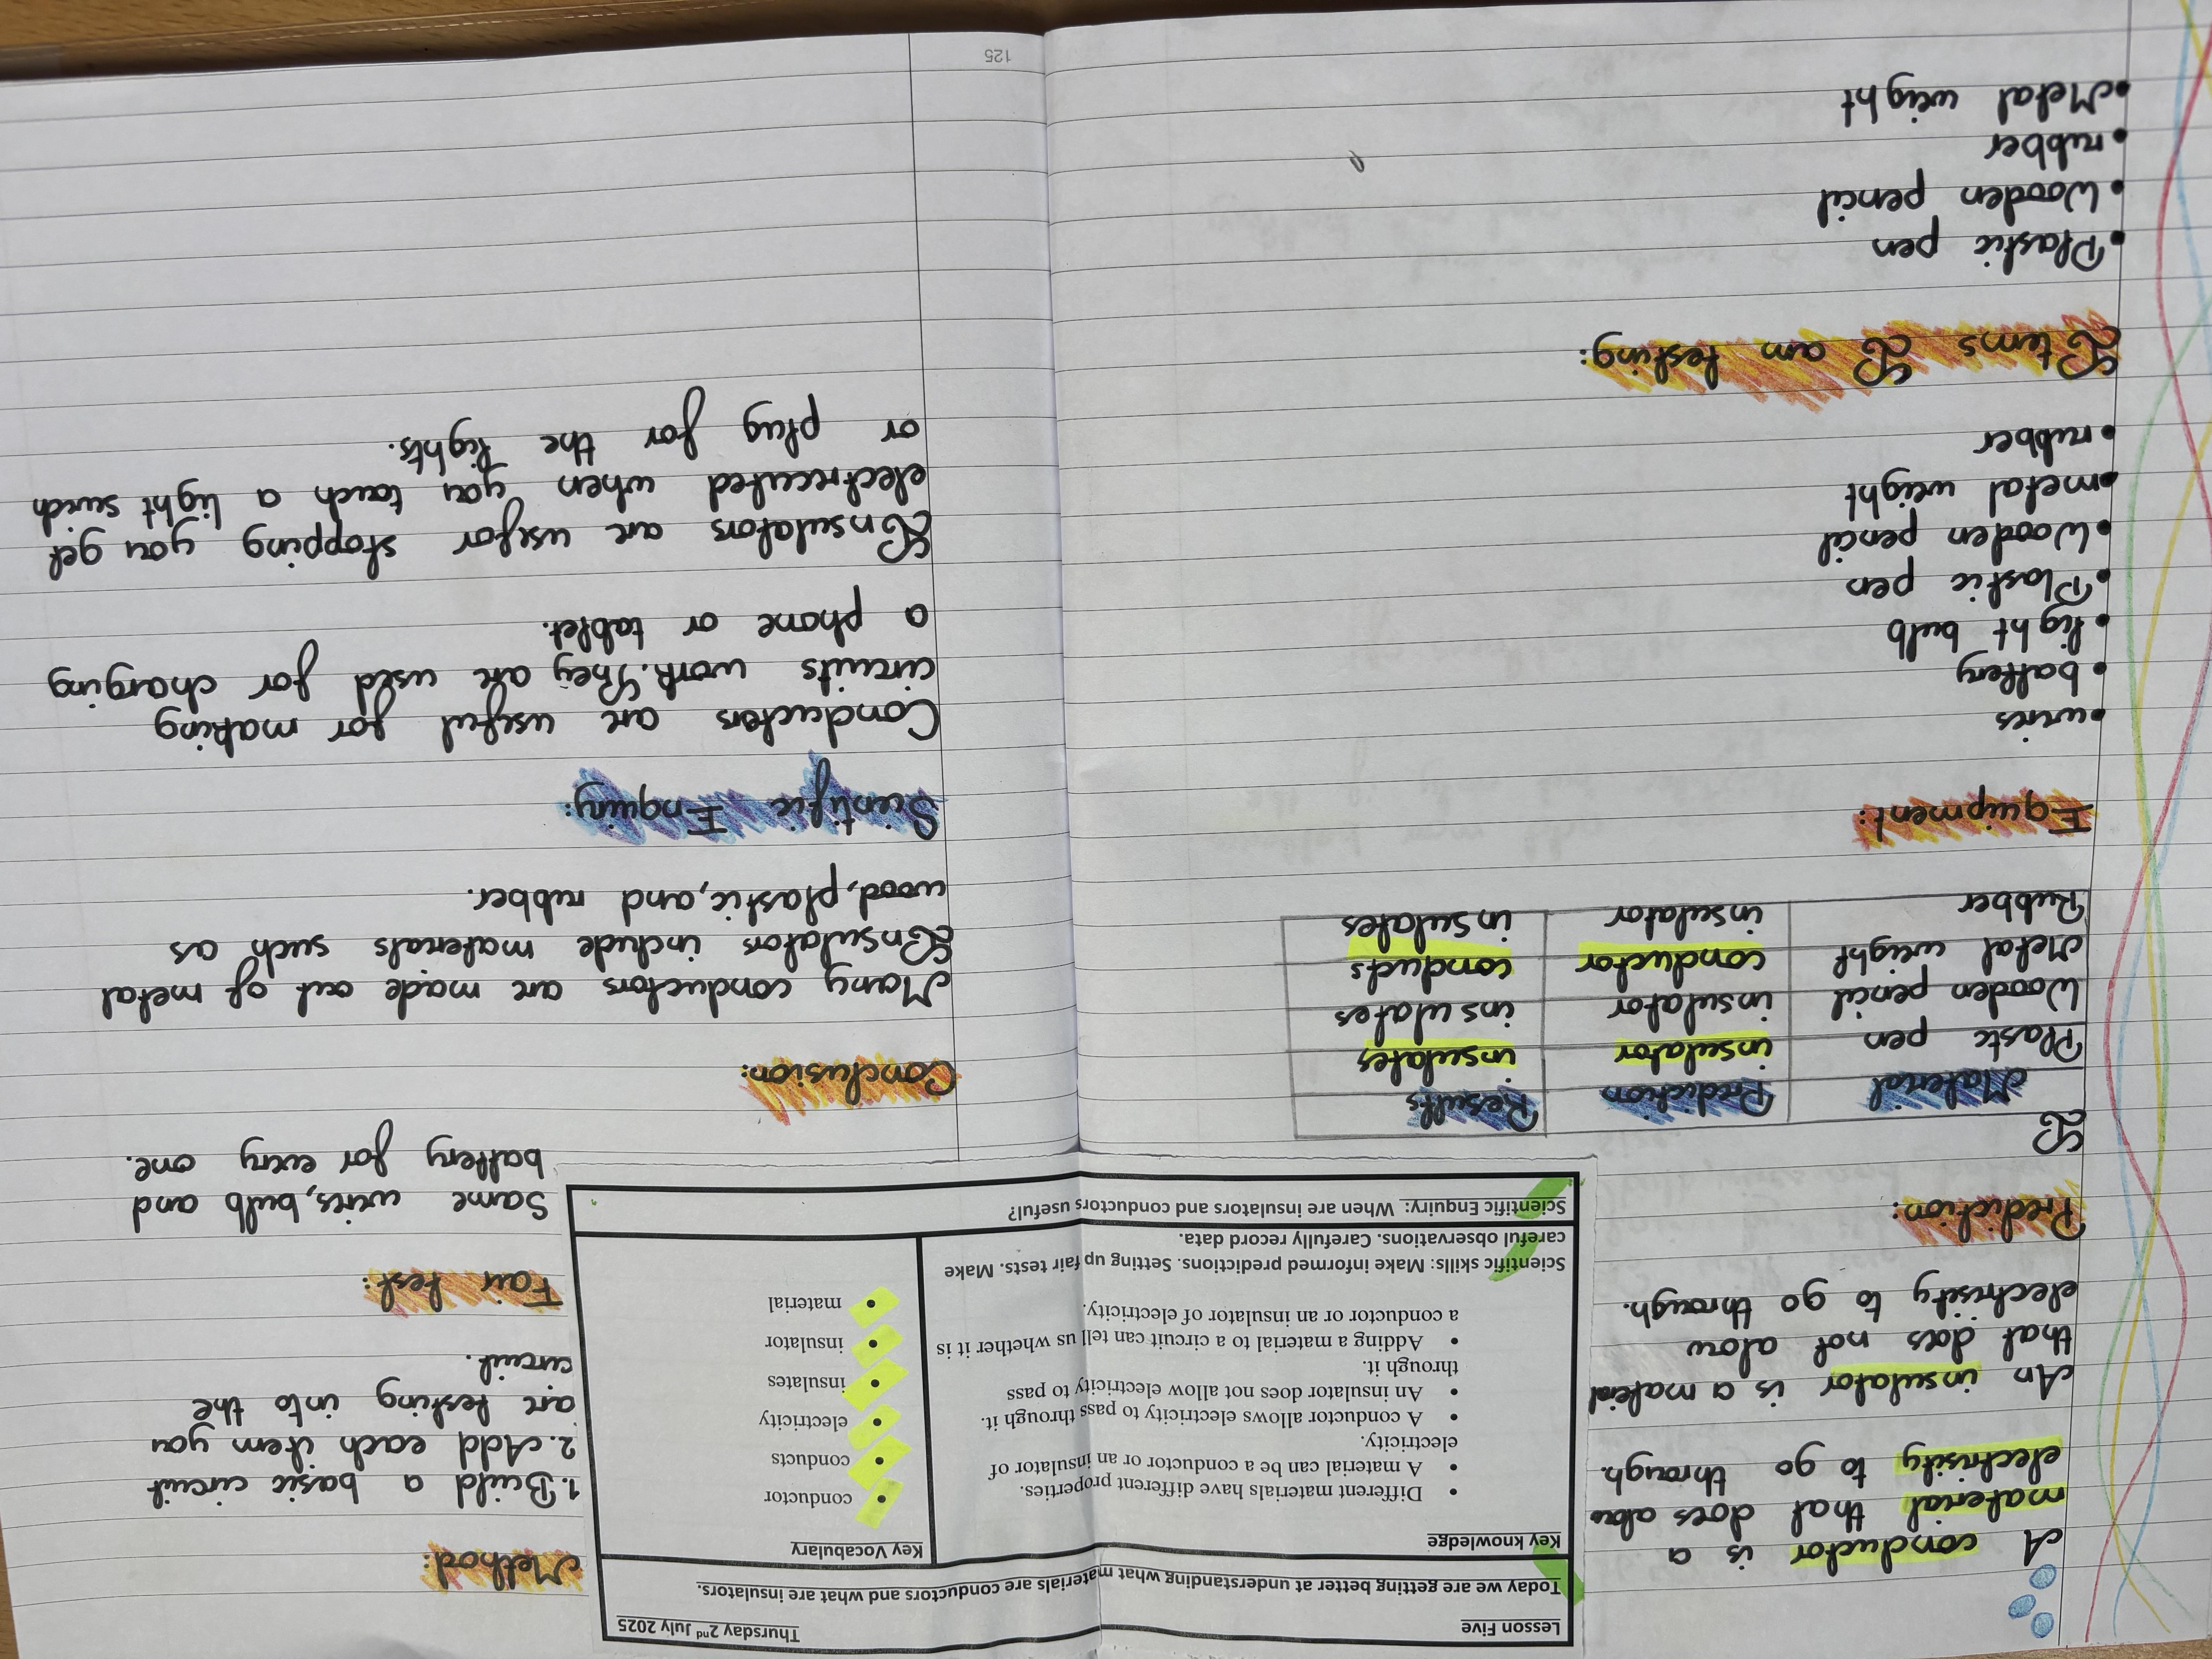 A conductor is a
material that does alow
electrisity to go through.
An insulator is a material
that does not alow
electrisity to go through.
Prediction:
I
Material Prediction Results
Plastic pen insulator insulates
Wooden pencil insulator insulates
Metal weight conductor conducts
Rubber insulator insulates
Equipment:
•wires
•battery
•light bulb
•Plastic pen
•Wooden pencil
•metal weight
•rubber
Items I am testing:
•Plastic pen
•Wooden pencil
•rubber
•Metal weight
Lesson Five Thursday 2nd July 2025
Today we are getting better at understanding what materials are conductors and what are insulators.
Key knowledge
• Different materials have different properties.
• A material can be a conductor or an insulator of
electricity.
• A conductor allows electricity to pass through it.
• An insulator does not allow electricity to pass
through it.
• Adding a material to a circuit can tell us whether it is
a conductor or an insulator of electricity.
Key Vocabulary
• conductor
• conducts
• electricity
• insulates
• insulator
• material
Scientific skills: Make informed predictions. Setting up fair tests. Make
careful observations. Carefully record data.
Scientific Enquiry: When are insulators and conductors useful?
Method:
1. Build a basic circuit
2. Add each item you
are testing into the
circuit.
Fair test:
Same wires, bulb and
battery for every one.
Conclusion:
Many conductors are made out of metal
Insulators include materials such as
wood, plastic, and rubber.
Sientific Enquiry:
Conductors are useful for making
circuits work. They are used for charging
a phone or tablet.
Insulators are usefor stopping you get
electrecuted when you touch a light swich
or plug for the lights.
125